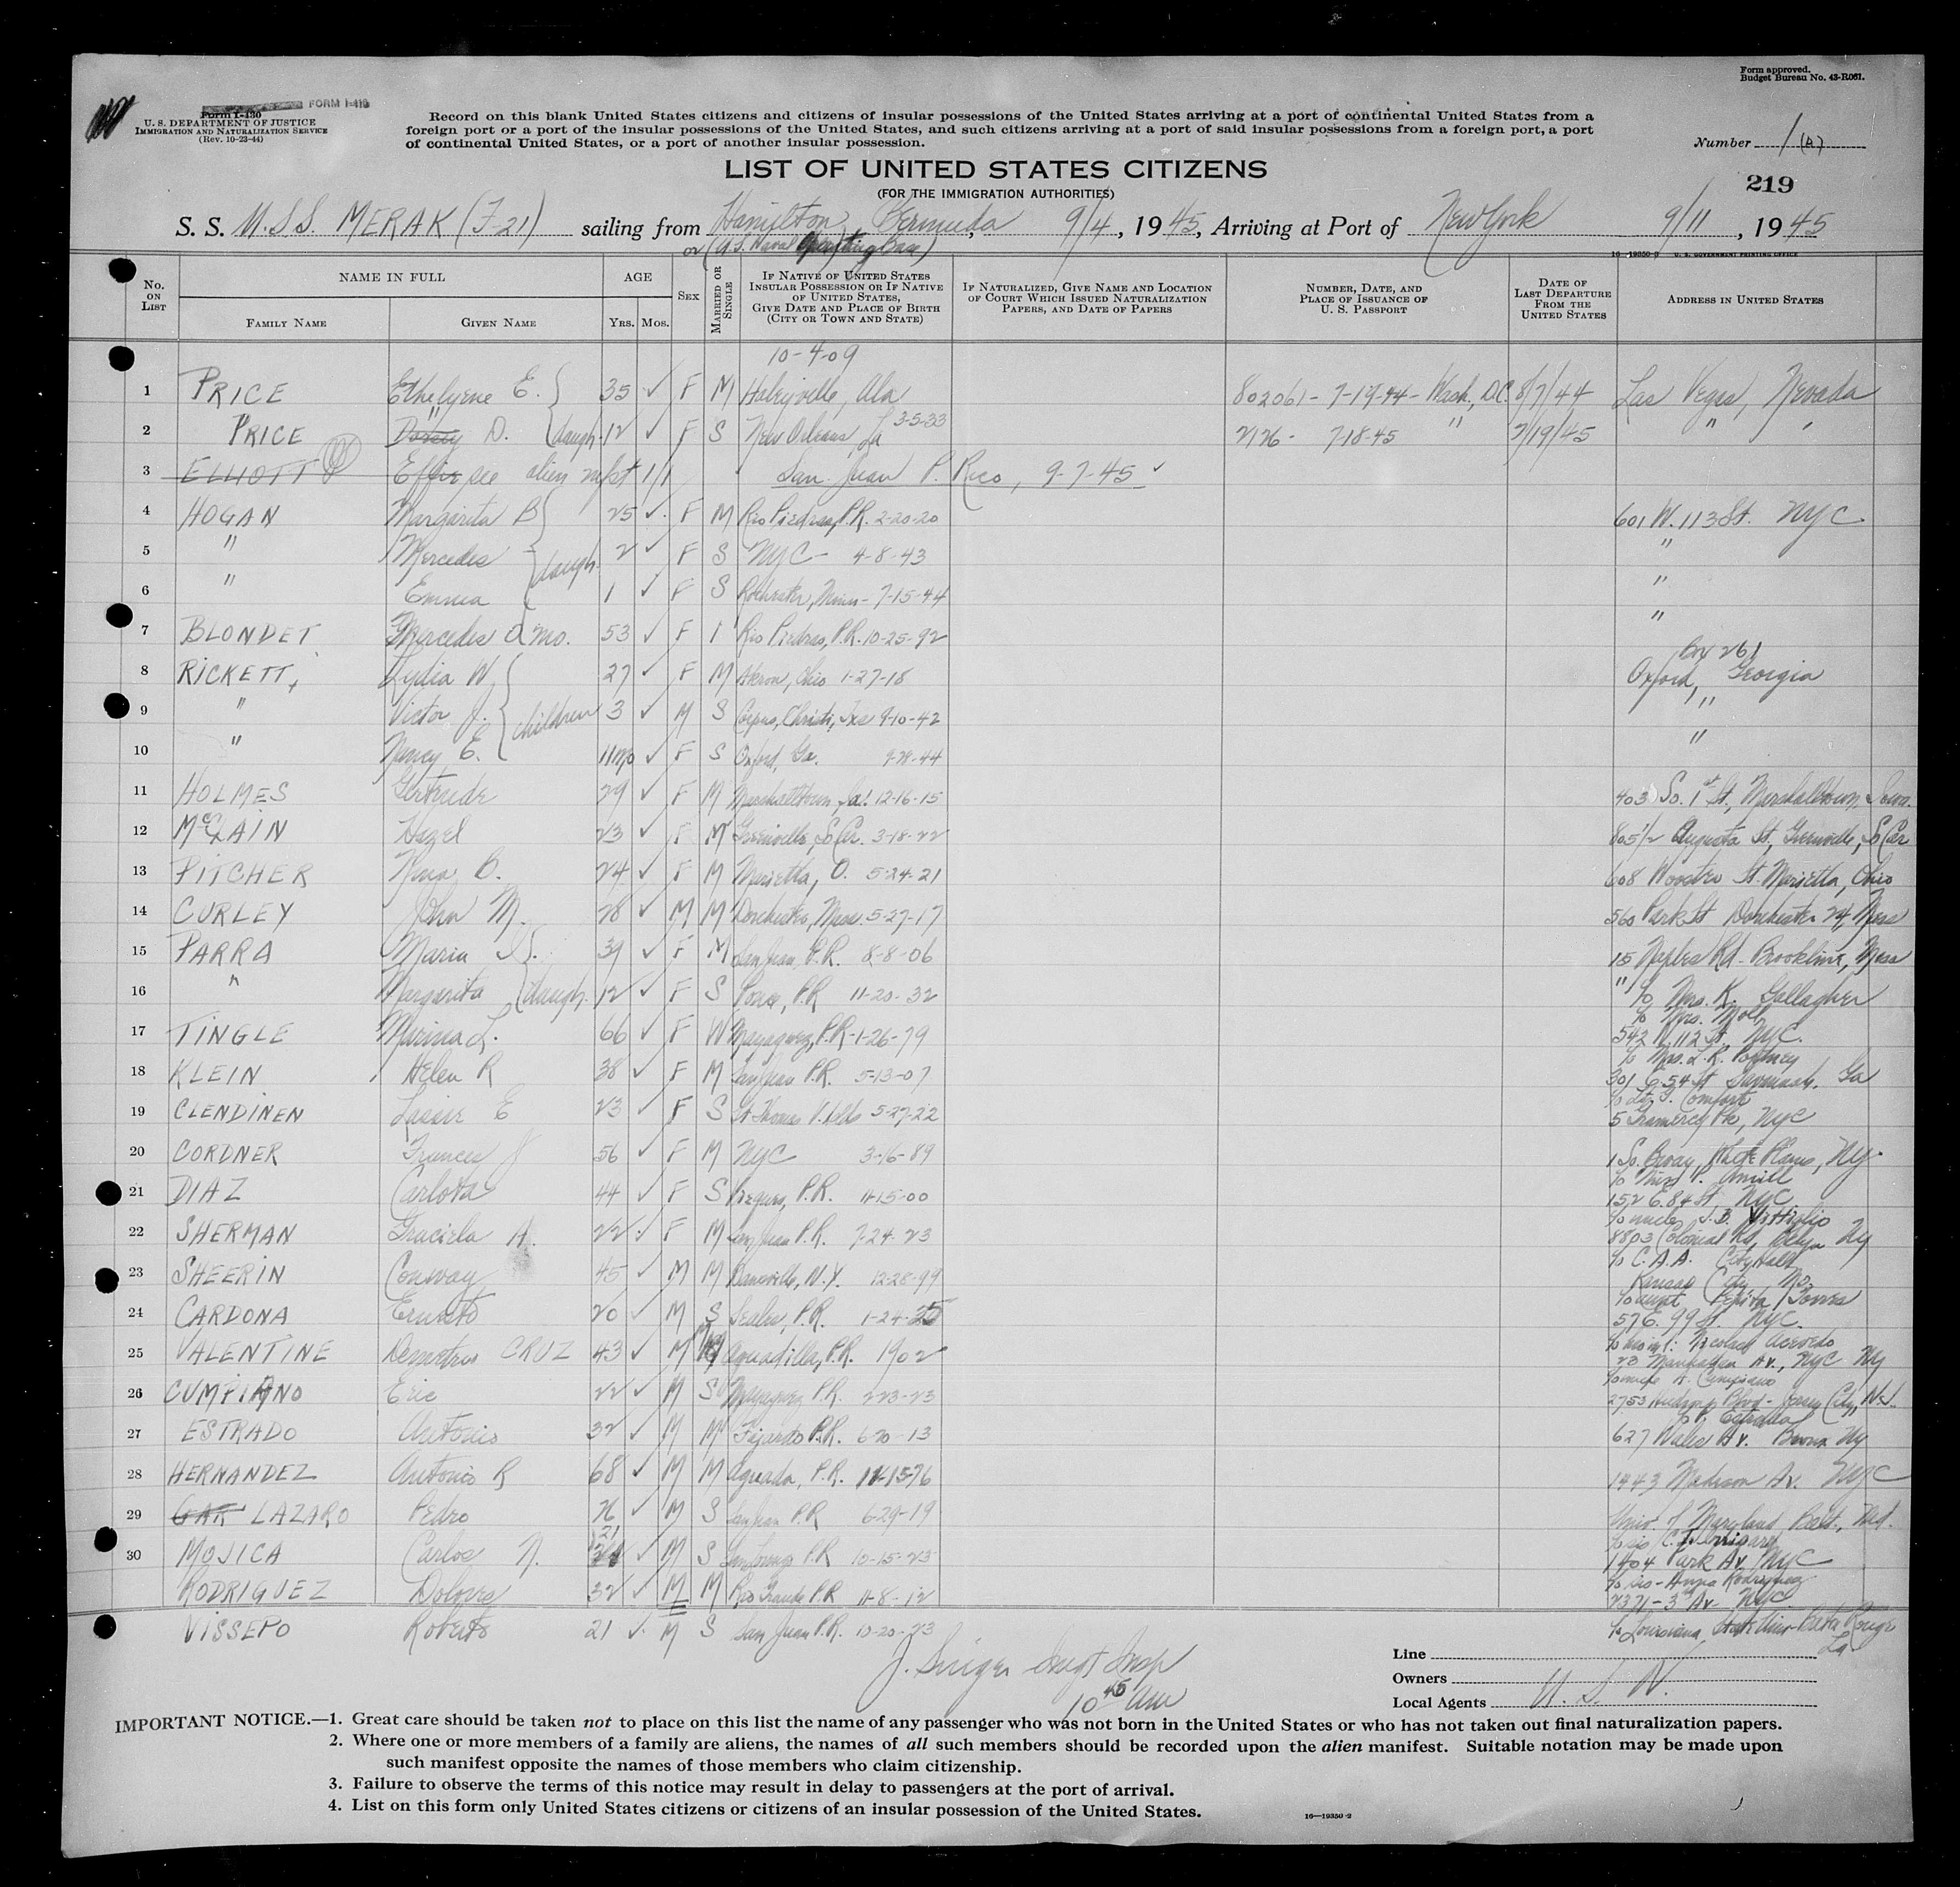 Form approved.
Budget Bureau No. 43-R061.
Form I-430 FORM I-416
U. S. DEPARTMENT OF JUSTICE
IMMIGRATION AND NATURALIZATION SERVICE
(Rev. 10-23-44)
Record on this blank United States citizens and citizens of insular possessions of the United States arriving at a port of continental United States from a
foreign port or a port of the insular possessions of the United States, and such citizens arriving at a port of said insular possessions from a foreign port, a port
of continental United States, or a port of another insular possession.
Number 1 (A)
LIST OF UNITED STATES CITIZENS
(FOR THE IMMIGRATION AUTHORITIES)
219
S. S. U.S.S. MERAK (F-21) sailing from Hamilton, Bermuda, 9/4, 1945, Arriving at Port of New York 9/11, 1945
or (U.S. Naval Operating Base)
16—19350-2 U. S. GOVERNMENT PRINTING OFFICE
No. ON LIST
NAME IN FULL
FAMILY NAME
GIVEN NAME
AGE
YRS. MOS.
SEX
MARRIED OR SINGLE
IF NATIVE OF UNITED STATES INSULAR POSSESSION OR IF NATIVE OF UNITED STATES, GIVE DATE AND PLACE OF BIRTH (CITY OR TOWN AND STATE)
IF NATURALIZED, GIVE NAME AND LOCATION OF COURT WHICH ISSUED NATURALIZATION PAPERS, AND DATE OF PAPERS
NUMBER, DATE, AND PLACE OF ISSUANCE OF U. S. PASSPORT
DATE OF LAST DEPARTURE FROM THE UNITED STATES
ADDRESS IN UNITED STATES
10-4-09
1 PRICE Ethelyrne E. 35 ✓ F M Haleyville, Ala 802061 - 7-17-44 - Wash., D.C. 8/7/44 Las Vegas, Nevada
2 PRICE D. daugh. 12 ✓ F S New Orleans, La 3-5-33 2126 - 7-18-45 " 7/19/45 " "
3 ELLIOTT Effie see alien mfst 1/1 San Juan P. Rico, 9-7-45 ✓
4 HOGAN Margarita B 25 ✓ F M Rio Piedras, P.R. 2-20-20 601 W. 113 St. NYC
5 " Mercedes daugh. 2 ✓ F S NYC - 4-8-43 "
6 " Emma 1 ✓ F S Rochester, Minn - 7-15-44 "
7 BLONDET Mercedes A mo. 53 ✓ F Rio Piedras, P.R. 10-25-92 "
8 RICKETT, Lydia W. 27 ✓ F M Akron, Ohio 1-27-18 Box 261 Oxford, Georgia
9 " Victor J. children 3 ✓ M S Corpus, Christi, Tex 9-10-42 "
10 " Nancy E. 11mo ✓ F S Oxford, Ga. 44 "
11 HOLMES Gertrude 29 ✓ F M Marshalltown, Ia. 12-16-15 403 So. 1st St., Marshalltown, Iowa.
12 McLAIN Hazel 23 ✓ F M Greenville, So Car. 3-18-22 805 1/2 Augusta St., Greenville, So Car
13 PITCHER B. 24 ✓ F M Marietta, O. 5-24-21 608 Wooster St. Marietta, Ohio
14 CURLEY John M. 28 ✓ M M Dorchester, Mass. 5-27-17 560 Park St Dorchester 24, Mass
15 PARRA Maria 39 ✓ F M San Juan, P.R. 8-8-06 15 Naples Rd - Brookline, Mass
16 " Margarita daugh. 12 ✓ F S Ponce, P.R 11-20-32 " c/o Mrs. K. Gallagher
17 TINGLE Marina L. 66 ✓ F W Mayaguez, P.R. 1-26-79 c/o Mrs. Moll 542 W. 112 St. NYC.
18 KLEIN Helen R 38 ✓ F M San Juan P.R. 5-13-07 c/o Mrs. L. R. 301 E 54 St Savannah, Ga
19 CLENDINEN E 23 ✓ F S St Thomas V. Ilds 5-27-22 Comfort 5 Gramercy Pk, NYC
20 CORDNER Frances J 56 ✓ F M NYC 3-16-89 1 So. Bway, White Plains, NY
21 DIAZ Carlota 44 ✓ F S Vieques, P.R. 11-15-00 c/o Miss 152 E. 84 St NYC
22 SHERMAN Graciela A. 22 ✓ F M San Juan P.R. 7-24-23 c/o uncle J. B. 8803 Colonial Rd, Bklyn NY
23 SHEERIN Conway 45 ✓ M M N.Y. 12-28-99 c/o C.A.A. City Hall Kansas City, Mo.
24 CARDONA Ernesto 20 ✓ M S P.R. 1-24-25 c/o aunt Pepita Torres 57 E. 99 St. NYC.
25 VALENTINE CRUZ 43 ✓ M Aguadilla, P.R. 1902 Acevedo 23 Manhattan Av., NYC NY
26 CUMPIANO Eric 22 ✓ M S Mayaguez P.R. 2-23-23 A. Cumpiano 2753 Hudson Blvd - Jersey City, N.J.
27 ESTRADO Antonio 32 ✓ M M Fajardo P.R. 6-20-13 627 Wales Av. Bronx NY
28 HERNANDEZ Antonio R 68 ✓ M M Aguada, P.R. 11-15-76 1443 Madison Av. NYC
29 LAZARO Pedro 26 ✓ M S San Juan P.R 6-29-19 Univ. of Maryland, Balt., Md.
30 MOJICA Carlos N. 21 ✓ M S San Lorenzo P.R 10-15-23 1404 Park Av, NYC
RODRIGUEZ Dolores 32 ✓ M M Rio Grande P.R 11-8-12 c/o sis - Anna Rodriguez 2321 - 3rd Av - NYC
VISSEPO Roberto 21 ✓ M S San Juan P.R. 10-20-23 c/o Louisiana State Univ - Baton Rouge La
J. Singer Imgt Insp
10 45 AM
Line
Owners
Local Agents U. S. N.
IMPORTANT NOTICE.—1. Great care should be taken not to place on this list the name of any passenger who was not born in the United States or who has not taken out final naturalization papers.
2. Where one or more members of a family are aliens, the names of all such members should be recorded upon the alien manifest. Suitable notation may be made upon
such manifest opposite the names of those members who claim citizenship.
3. Failure to observe the terms of this notice may result in delay to passengers at the port of arrival.
4. List on this form only United States citizens or citizens of an insular possession of the United States.
16—19350-2